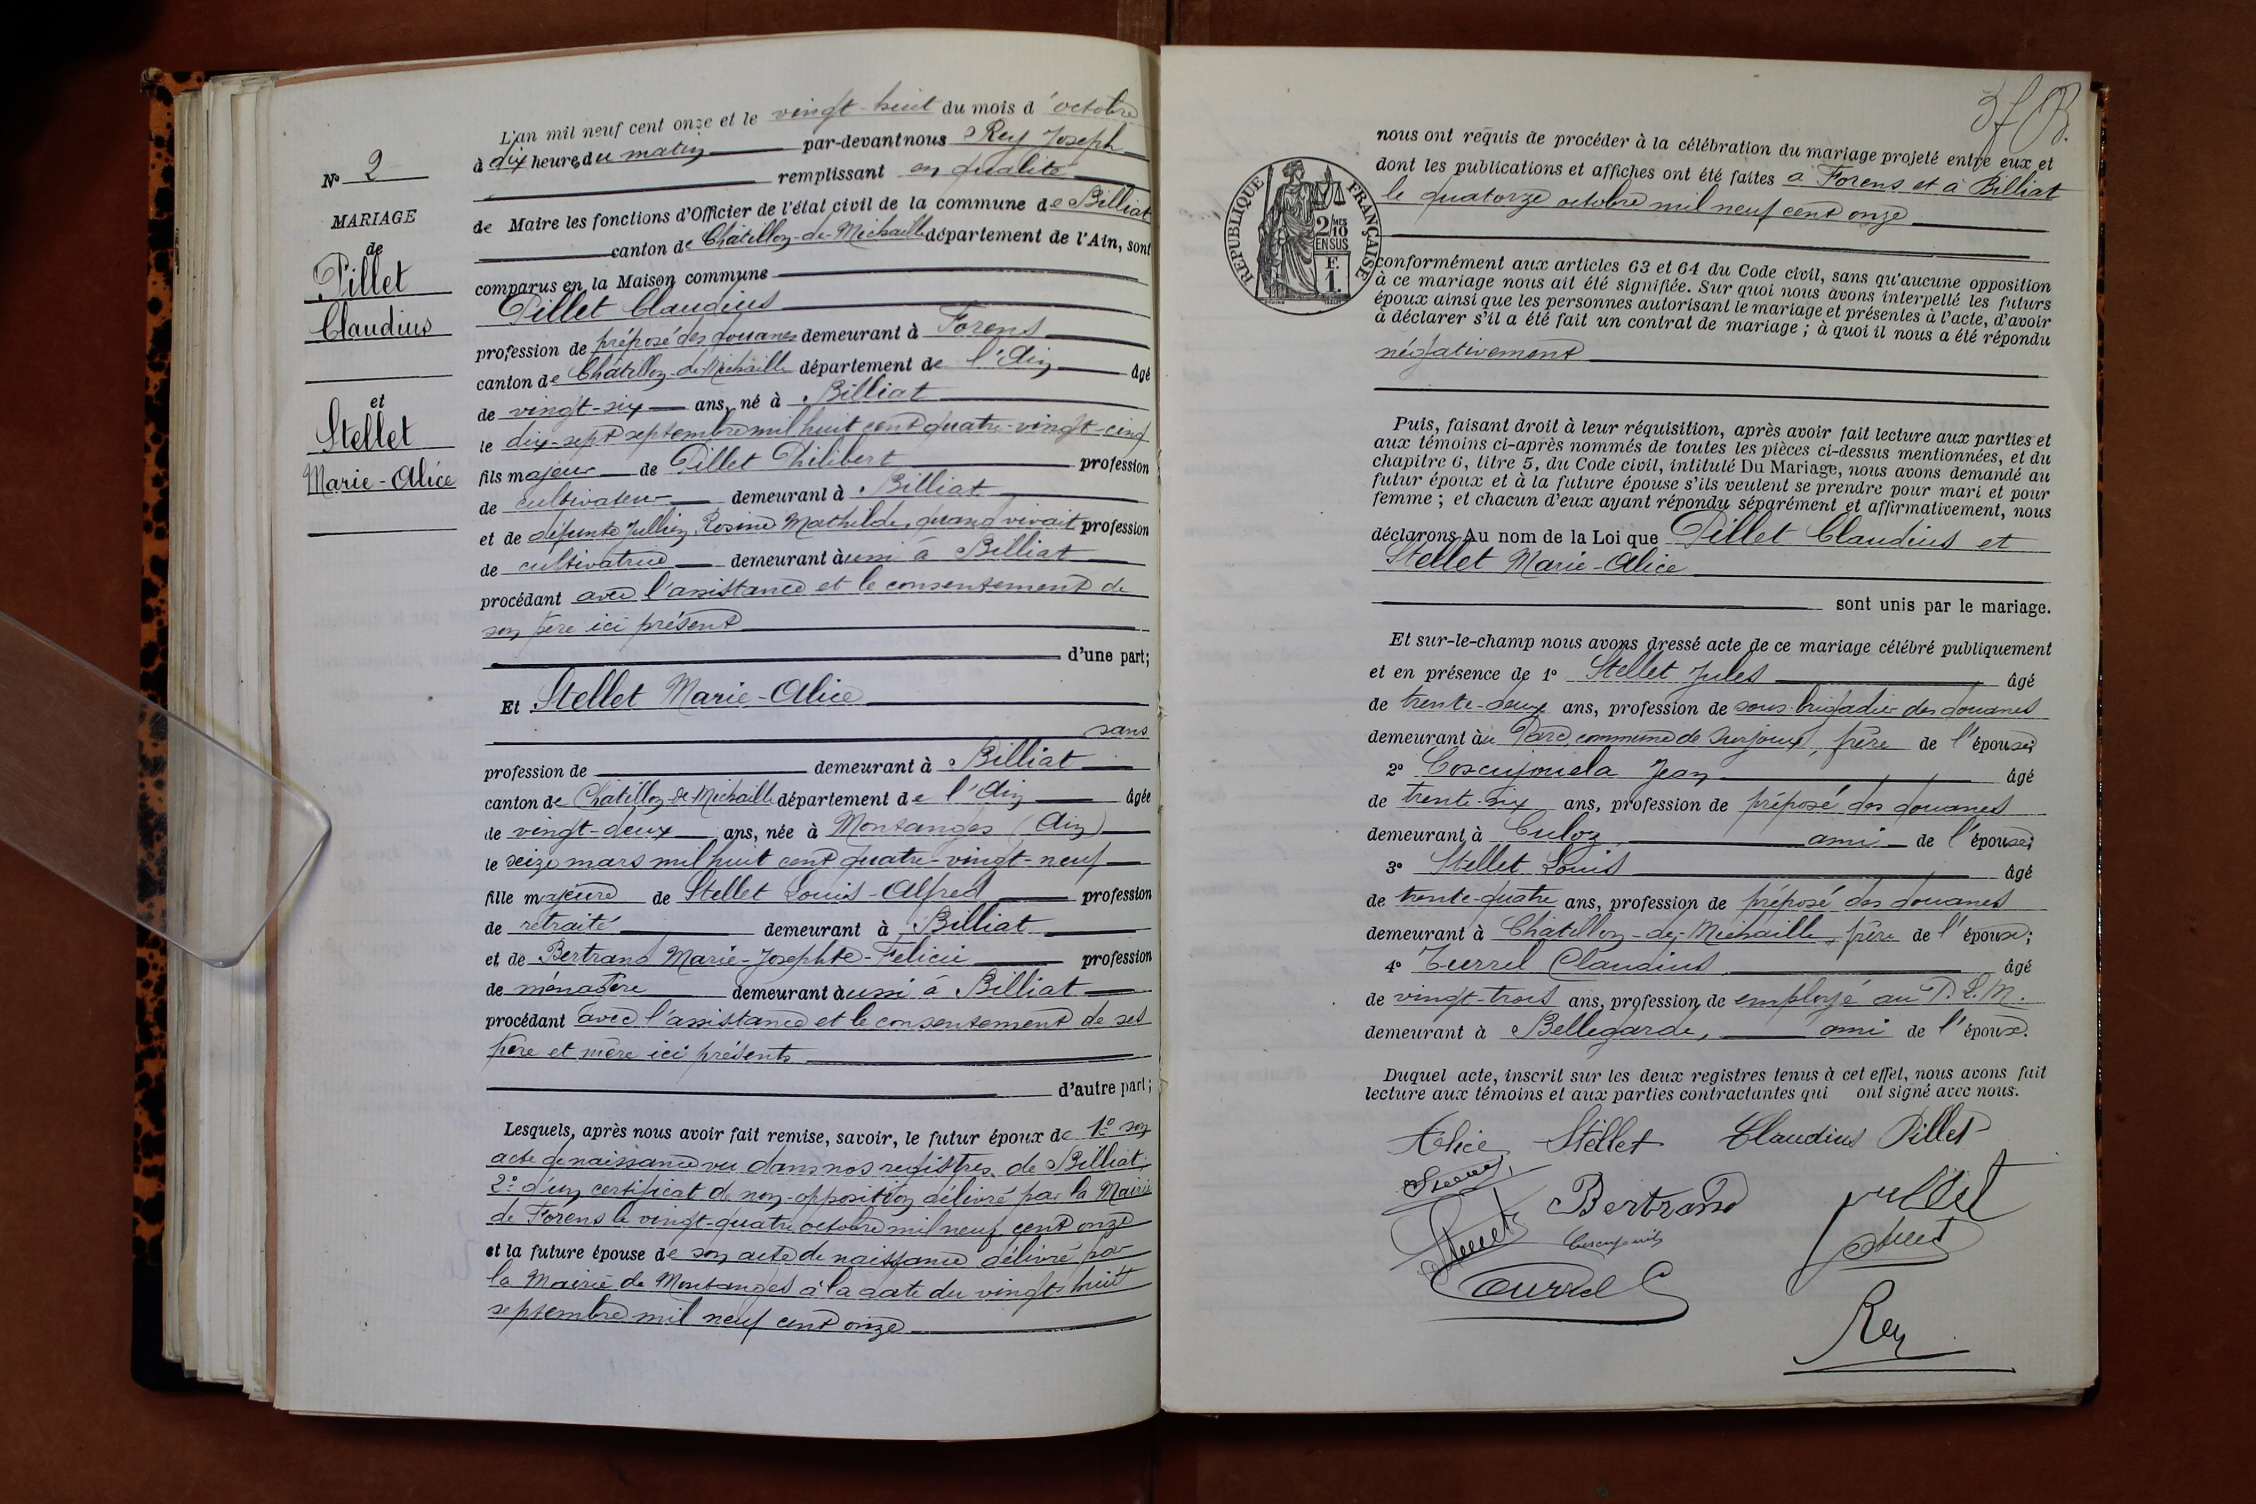 N° 2
MARIAGE
de
Pillet
Claudius
et
Stellet
Marie-Alice
L'an mil neuf cent onze et le vingt-huit du mois d'octobre
à dix heures du matin par-devant nous Rey Joseph
remplissant en qualité
de Maire les fonctions d'Officier de l'état civil de la commune de Billiat
canton de Châtillon-de-Michaille département de l'Ain, sont
comparus en la Maison commune
Pillet Claudius
profession de préposé des douanes demeurant à Forens
canton de Châtillon-de-Michaille département de l'Ain âgé
de vingt-six ans, né à Billiat
le dix-sept septembre mil huit cent quatre-vingt-cinq
fils majeur de Pillet Philibert profession
de cultivateur demeurant à Billiat
et de défunte Jullien Rosine Mathilde, quand vivait profession
de cultivatrice demeurant aussi à Billiat
procédant avec l'assistance et le consentement de
son père ici présent
d'une part;
Et Stellet Marie-Alice
sans
profession de demeurant à Billiat
canton de Châtillon-de-Michaille département de l'Ain âgée
de vingt-deux ans, née à Montanges (Ain)
le seize mars mil huit cent quatre-vingt-neuf
fille majeure de Stellet Louis-Alfred profession
de retraité demeurant à Billiat
et de Bertrand Marie-Josephte-Félicie profession
de ménagère demeurant aussi à Billiat
procédant avec l'assistance et le consentement de ses
père et mère ici présents
d'autre part;
Lesquels, après nous avoir fait remise, savoir, le futur époux de 1° son
acte de naissance vu dans nos registres de Billiat;
2° d'un certificat de non-opposition délivré par la Mairie
de Forens le vingt-quatre octobre mil neuf cent onze
et la future épouse de son acte de naissance délivré par
la Mairie de Montanges à la date du vingt-huit
septembre mil neuf cent onze
nous ont requis de procéder à la célébration du mariage projeté entre eux et
dont les publications et affiches ont été faites à Forens et à Billiat
le quatorze octobre mil neuf cent onze
RÉPUBLIQUE FRANÇAISE
2/10 MES
EN SUS
F.
1.
conformément aux articles 63 et 64 du Code civil, sans qu'aucune opposition
à ce mariage nous ait été signifiée. Sur quoi nous avons interpellé les futurs
époux ainsi que les personnes autorisant le mariage et présentes à l'acte, d'avoir
à déclarer s'il a été fait un contrat de mariage ; à quoi il nous a été répondu
négativement
Puis, faisant droit à leur réquisition, après avoir fait lecture aux parties et
aux témoins ci-après nommés de toutes les pièces ci-dessus mentionnées, et du
chapitre 6, titre 5, du Code civil, intitulé Du Mariage, nous avons demandé au
futur époux et à la future épouse s'ils veulent se prendre pour mari et pour
femme ; et chacun d'eux ayant répondu séparément et affirmativement, nous
déclarons Au nom de la Loi que Pillet Claudius et
Stellet Marie-Alice
sont unis par le mariage.
Et sur-le-champ nous avons dressé acte de ce mariage célébré publiquement
et en présence de 1° Stellet Jules âgé
de trente-deux ans, profession de sous-brigadier des douanes
demeurant au Parc, commune de Surjoux, frère de l'épouse;
2° Coscujouela Jean âgé
de trente-six ans, profession de préposé des douanes
demeurant à Culoz ami de l'épouse;
3° Stellet Louis âgé
de trente-quatre ans, profession de préposé des douanes
demeurant à Châtillon-de-Michaille, frère de l'épouse;
4° Turrel Claudius âgé
de vingt-trois ans, profession de employé au P.L.M.
demeurant à Bellegarde, ami de l'époux.
Duquel acte, inscrit sur les deux registres tenus à cet effet, nous avons fait
lecture aux témoins et aux parties contractantes qui ont signé avec nous.
Alice Stellet Claudius Pillet
Bertrand Pillet
Stellet
Rey